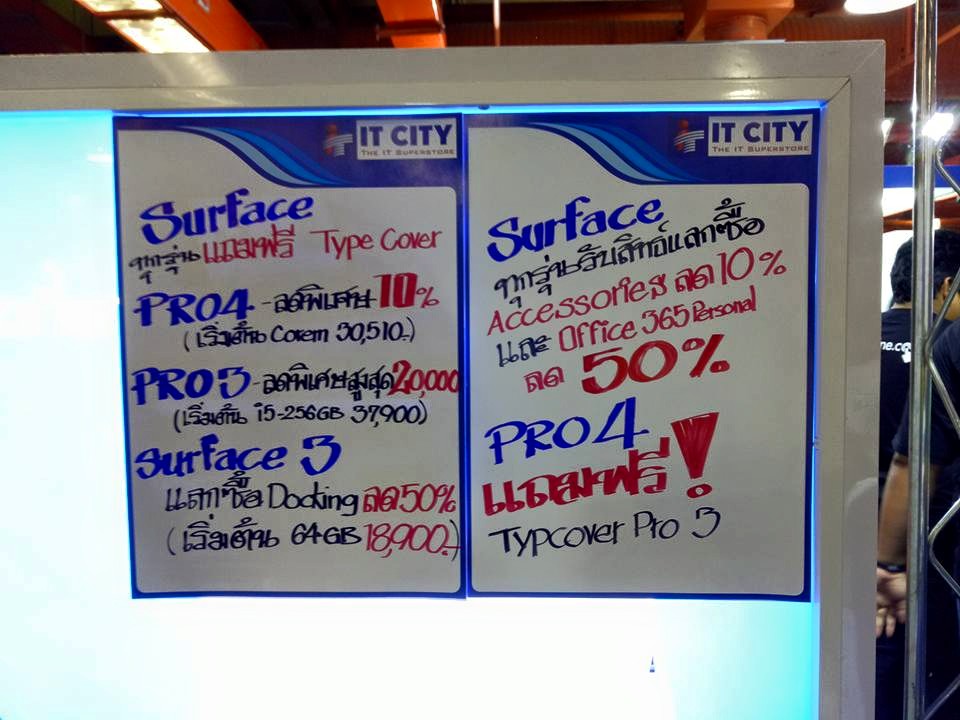 IT CITY
THE IT SUPERSTORE
Surface
ทุกรุ่น แถมฟรี Type Cover
PRO4 - ลดพิเศษ 10%
(เริ่มต้น Corem 30,510.-)
PRO3 - ลดพิเศษสูงสุด 20,000
(เริ่มต้น i5-256GB 37,900)
Surface 3
แลกซื้อ Docking ลด 50%
(เริ่มต้น 64GB 18,900.-)
IT CITY
THE IT SUPERSTORE
Surface
ทุกรุ่นรับสิทธิ์แลกซื้อ
Accessories ลด 10%
และ Office 365 Personal
ลด 50%
PRO4
แถมฟรี!
Typcover Pro 3
ne.co